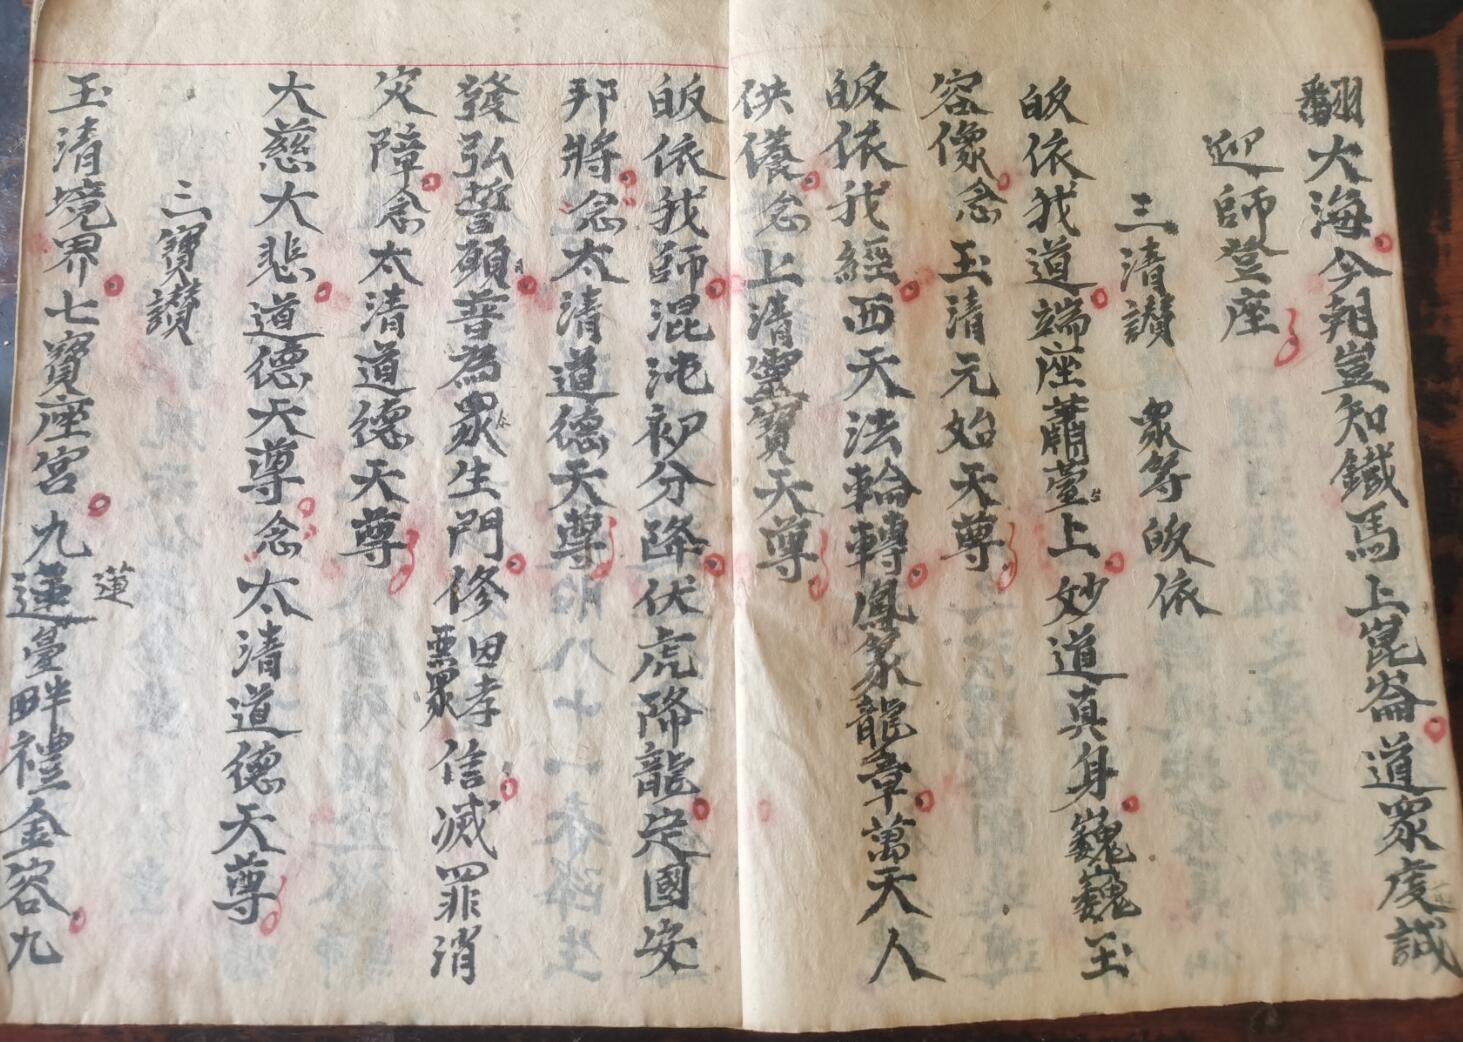 翻大海今朝豈知鐵馬上崑崙道眾虔誠
迎師登座
三清讚 衆等皈依
皈依我道端座蕭臺上妙道真身巍巍玉
容像念玉清元始天尊
皈依我經西天法輪轉鳳篆龍章萬天人
供養念上清靈寶天尊
皈依我師混沌初分降伏虎降龍定國安
邦將念太清道德天尊
發弘誓願普為眾生門修因孝悪眾信滅罪消
灾障念太清道德天尊
大慈大悲道德天尊念太清道德天尊
三寶讚
玉清境界七寶座宮九蓮臺畔禮金容九
蓮